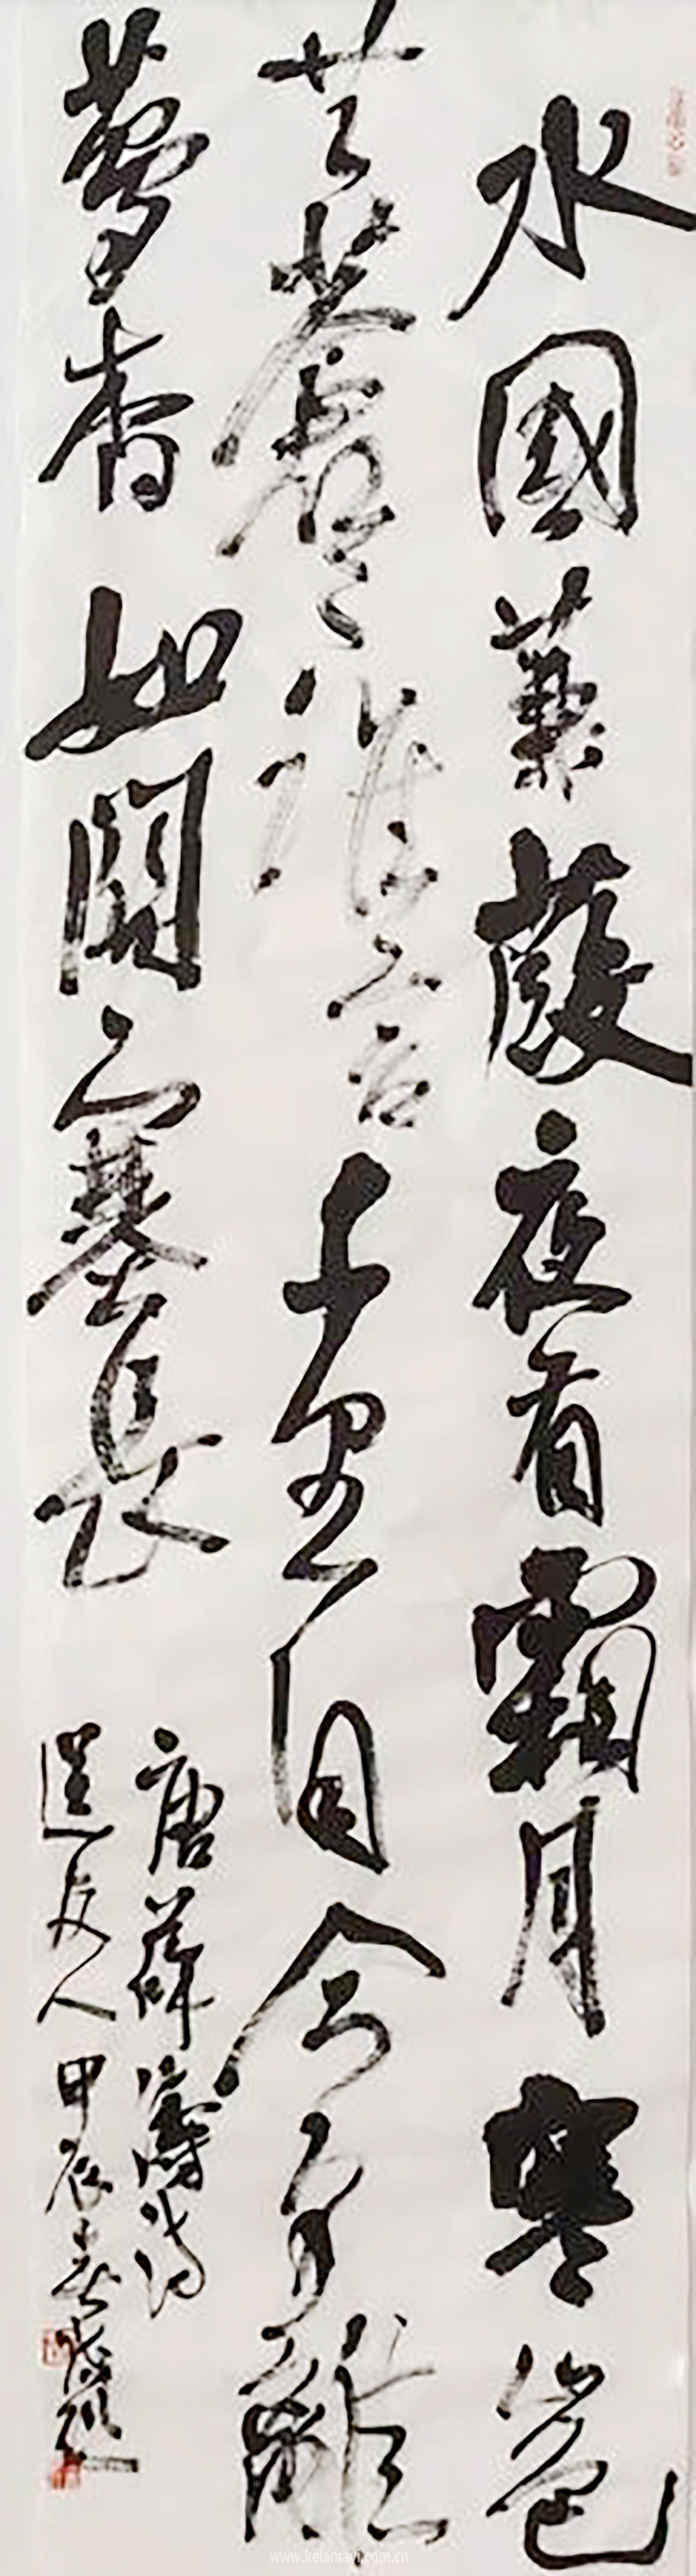 水國蒹葭夜有霜月寒山色
共蒼々誰言千里自今夕離
夢杳如關塞長
唐薛濤詩
送友人甲辰春
www.kelamayi.com.cn